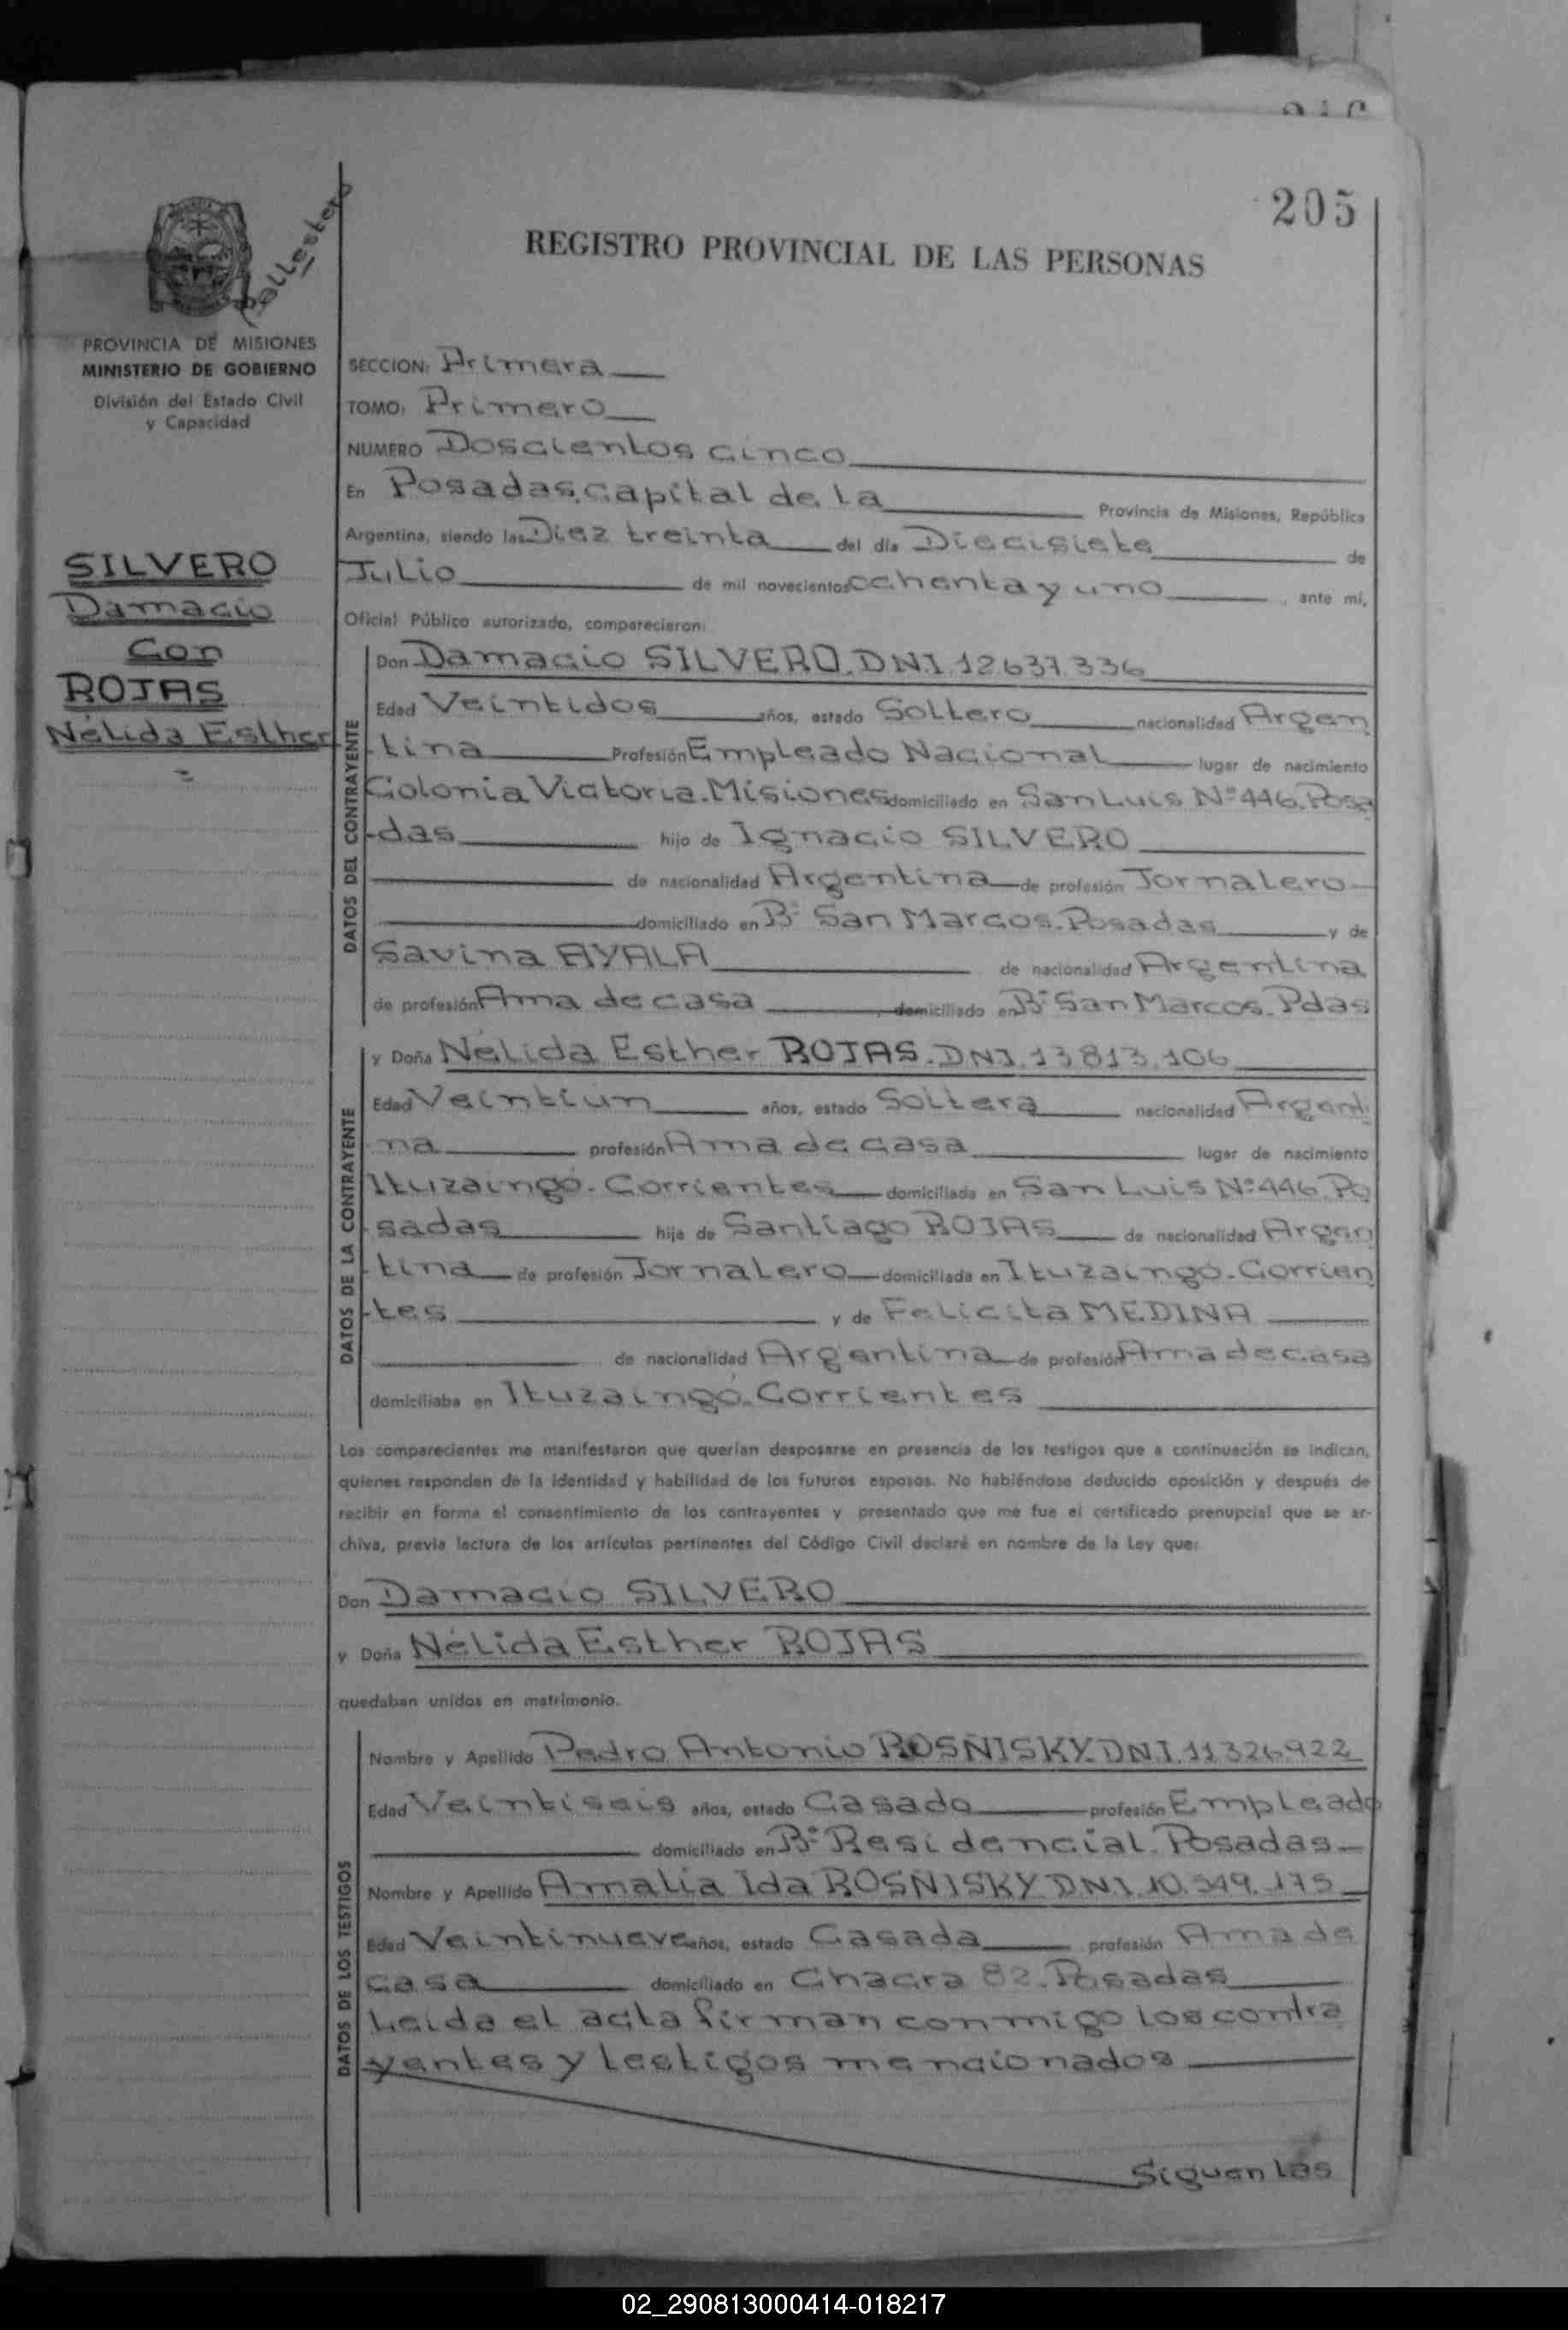 205
REGISTRO PROVINCIAL DE LAS PERSONAS
PROVINCIA DE MISIONES
MINISTERIO DE GOBIERNO
División del Estado Civil
y Capacidad
SILVERO
Damacio
Con
ROJAS
Nélida Esther
SECCION: Primera
TOMO: Primero
NUMERO Doscientos cinco
En Posadas, capital de la Provincia de Misiones, República
Argentina, siendo las Diez treinta del día Diecisiete de
Julio de mil novecientos ochenta y uno, ante mi,
Oficial Público autorizado, comparecieron:
DATOS DEL CONTRAYENTE
Don Damacio SILVERO. DNI 12.637.336
Edad Veintidos años, estado Soltero nacionalidad Argen
-tina Profesión Empleado Nacional lugar de nacimiento
Colonia Victoria. Misiones domiciliado en San Luis Nº 446. Posa
-das hijo de Ignacio SILVERO
de nacionalidad Argentina de profesión Jornalero
domiciliado en Bº San Marcos. Posadas y de
Savina AYALA de nacionalidad Argentina
de profesión Ama de casa, domiciliado en Bº San Marcos. Pdas
DATOS DE LA CONTRAYENTE
y Doña Nélida Esther ROJAS. DNI. 13.813.106
Edad Veintiun años, estado Soltera nacionalidad Argenti
na profesión Ama de casa lugar de nacimiento
Ituzaingó. Corrientes domiciliada en San Luis Nº 446. Po
-sadas hija de Santiago ROJAS de nacionalidad Argen
-tina de profesión Jornalero domiciliada en Ituzaingó. Corrien
-tes y de Felicita MEDINA
de nacionalidad Argentina de profesión Ama de casa
domiciliaba en Ituzaingó. Corrientes
Los comparecientes me manifestaron que querían desposarse en presencia de los testigos que a continuación se indican,
quienes responden de la identidad y habilidad de los futuros esposos. No habiéndose deducido oposición y después de
recibir en forma el consentimiento de los contrayentes y presentado que me fue el certificado prenupcial que se ar-
chiva, previa lectura de los artículos pertinentes del Código Civil declaré en nombre de la Ley que:
Don Damacio SILVERO
y Doña Nélida Esther ROJAS
quedaban unidos en matrimonio.
DATOS DE LOS TESTIGOS
Nombre y Apellido Pedro Antonio ROSÑISKY. DNI. 11.326.922
Edad Veintiseis años, estado Casado profesión Empleado
domiciliado en Bº Residencial. Posadas
Nombre y Apellido Amalia Ida ROSÑISKY DNI. 10.549.175
Edad Veintinueve años, estado Casada profesión Ama de
casa domiciliado en Chacra 82. Posadas
Leida el acta firman conmigo los contra
yentes y testigos mencionados
Siguen las
02_290813000414-018217